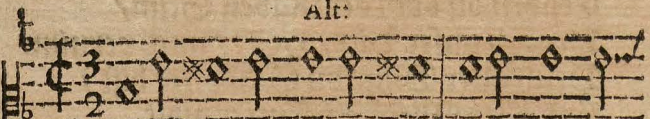 Alt:
3
2